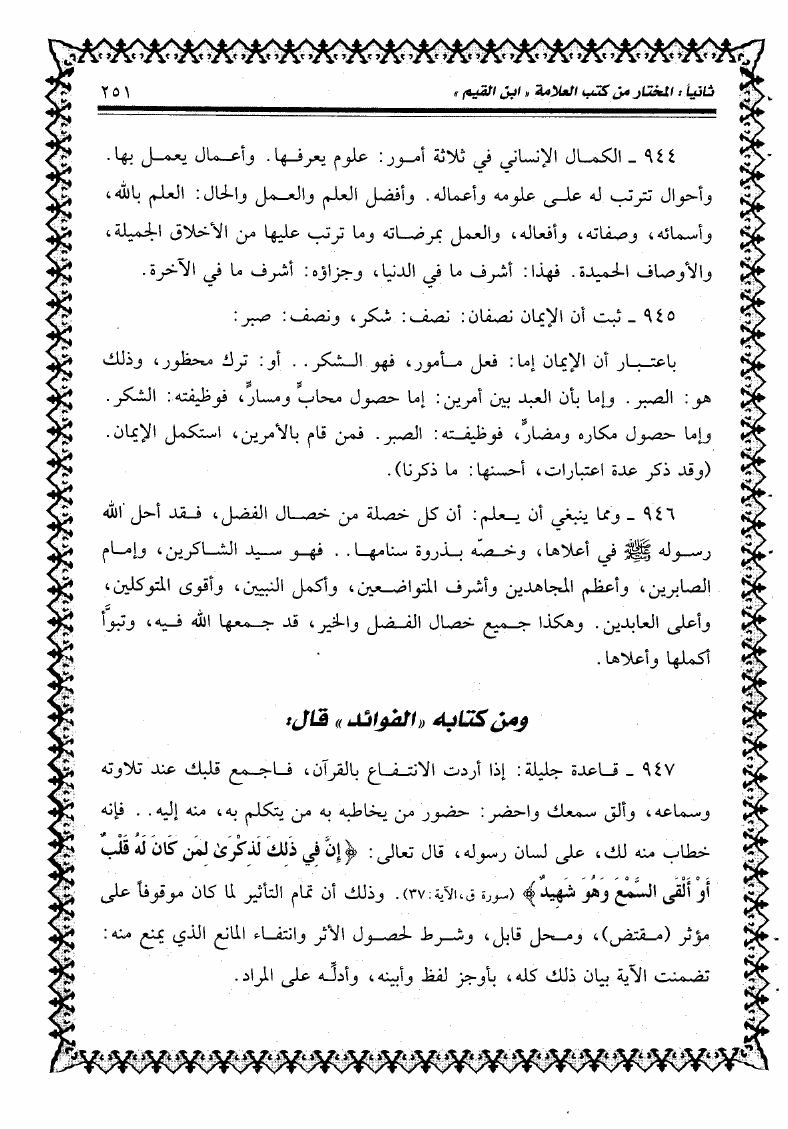 ثانياً: المختار من كتب العلامة «ابن القيم»
٢٥١
٩٤٤ ـ الكمال الإنساني في ثلاثة أمور: علوم يعرفها. وأعمال يعمل بها.
وأحوال تترتب له على علومه وأعماله. وأفضل العلم والعمل والحال: العلم بالله،
وأسمائه، وصفاته، وأفعاله، والعمل بمرضاته وما ترتب عليها من الأخلاق الجميلة،
والأوصاف الحميدة. فهذا: أشرف ما في الدنيا، وجزاؤه: أشرف ما في الآخرة.
٩٤٥ ـ ثبت أن الإيمان نصفان: نصف: شكر، ونصف: صبر:
باعتبار أن الإيمان إما: فعل مأمور، فهو الشكر.. أو: ترك محظور، وذلك
هو: الصبر. وإما بأن العبد بين أمرين: إما حصول محابٍّ ومسارٍّ، فوظيفته: الشكر.
وإما حصول مكاره ومضارٍّ، فوظيفته: الصبر. فمن قام بالأمرين، استكمل الإيمان.
(وقد ذكر عدة اعتبارات، أحسنها: ما ذكرنا).
٩٤٦ ـ ومما ينبغي أن يعلم: أن كل خصلة من خصال الفضل، فقد أحل الله
رسوله ﷺ في أعلاها، وخصّه بذروة سنامها.. فهو سيد الشاكرين، وإمام
الصابرين، وأعظم المجاهدين وأشرف المتواضعين، وأكمل النبيين، وأقوى المتوكلين،
وأعلى العابدين. وهكذا جميع خصال الفضل والخير، قد جمعها الله فيه، وتبوَّأ
أكملها وأعلاها.
ومن كتابه «الفوائد» قال:
٩٤٧ ـ قاعدة جليلة: إذا أردت الانتفاع بالقرآن، فاجمع قلبك عند تلاوته
وسماعه، وألق سمعك واحضر: حضور من يخاطبه به من يتكلم به، منه إليه.. فإنه
خطاب منه لك، على لسان رسوله، قال تعالى: ﴿إِنَّ فِي ذَلِكَ لَذِكْرَىٰ لِمَن كَانَ لَهُ قَلْبٌ
أَوْ أَلْقَى السَّمْعَ وَهُوَ شَهِيدٌ﴾ (سورة ق،الآية:٣٧). وذلك أن تمام التأثير لما كان موقوفاً على
مؤثر (مقتض)، ومحل قابل، وشرط لحصول الأثر وانتفاء المانع الذي يمنع منه:
تضمنت الآية بيان ذلك كله، بأوجز لفظ وأبينه، وأدلِّه على المراد.